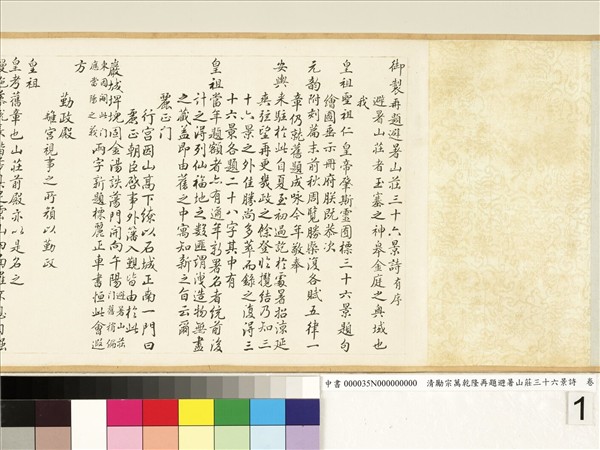 御製再題避暑山莊三十六景詩有序
避暑山莊者玉塞之神皋金庭之奧域也
我
皇祖聖祖仁皇帝肇斯靈囿標三十六景題句
繪圖垂示冊府朕既恭次
元韵附刻篇末前秋周覽勝槩復各賦五律一
章仍就舊題成咏今年敬奉
安輿來駐於此自夏至初過訖於處暑招涼延
爽弦望再更幾政之餘登臨攬結乃知三
十六景之外佳勝尚多萃而錄之復得三
十六景各題二十八字其中有
皇祖當年題額者亦有邇年新署名者統前後
計之得列仙福地之數匪謂洩造物無盡
之藏盖即由舊之中寓知新之白云爾
麗正門
行宮因山高下繚以石城正南一門曰
麗正朝臣啟事外藩入覲皆由於此
巖城埤堄固金湯詄蕩門開向午陽
兩字新題標麗正車書恒此會遐
方
勤政殿
離宮視事之所額以勤政
皇祖
皇考舊章也山莊前殿亦以是名之
中書 000035N000000000 清勵宗萬乾隆再題避暑山莊三十六景詩 卷
1